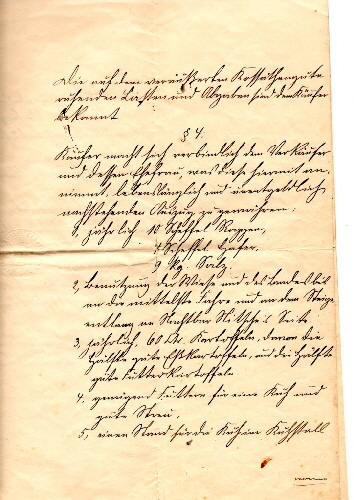 Die auf dem veräußerten Kossäthengute
ruhenden Lasten und Abgaben sind dem Käufer
bekannt
§ 4.
Käufer macht sich verbindlich dem Verkäufer
und dessen Ehefrau, was diese hiermit an-
nimmt, lebenslänglich und unentgeldlich
nachstehenden Auszug zu gewähren:
1, jährlich 10 Scheffel Roggen,
4 Scheffel Hafer,
9 kg. Salz
2, Benutzung der Wiese und des Landes bis
an die mittelste Fahre und an dem Steige
entlang an Nachbar Nitsches Seite
3, jährlich, 60 Ctr. Kartoffeln, davon die
Hälfte gute Eßkartoffeln, und die Hälfte
gute Futterkartoffeln
4, genügend Futter für eine Kuh und
gute Streu,
5, einen Stand für die Kuh im Kuhstall